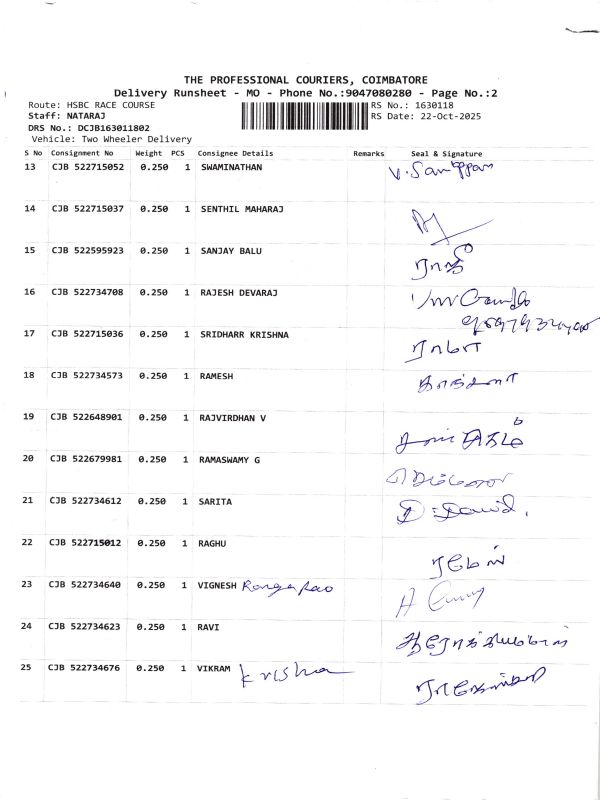 THE PROFESSIONAL COURIERS, COIMBATORE
Delivery Runsheet - MO - Phone No.:9047080280 - Page No.:2
Route: HSBC RACE COURSE RS No.: 1630118
Staff: NATARAJ RS Date: 22-Oct-2025
DRS No.: DCJB163011802
Vehicle: Two Wheeler Delivery
S No Consignment No Weight PCS Consignee Details Remarks Seal & Signature
13 CJB 522715052 0.250 1 SWAMINATHAN
14 CJB 522715037 0.250 1 SENTHIL MAHARAJ
15 CJB 522595923 0.250 1 SANJAY BALU
16 CJB 522734708 0.250 1 RAJESH DEVARAJ
17 CJB 522715036 0.250 1 SRIDHARR KRISHNA
18 CJB 522734573 0.250 1 RAMESH
19 CJB 522648901 0.250 1 RAJVIRDHAN V
20 CJB 522679981 0.250 1 RAMASWAMY G
21 CJB 522734612 0.250 1 SARITA D. David.
22 CJB 522715012 0.250 1 RAGHU
23 CJB 522734640 0.250 1 VIGNESH Ranga Rao
24 CJB 522734623 0.250 1 RAVI
25 CJB 522734676 0.250 1 VIKRAM krisha